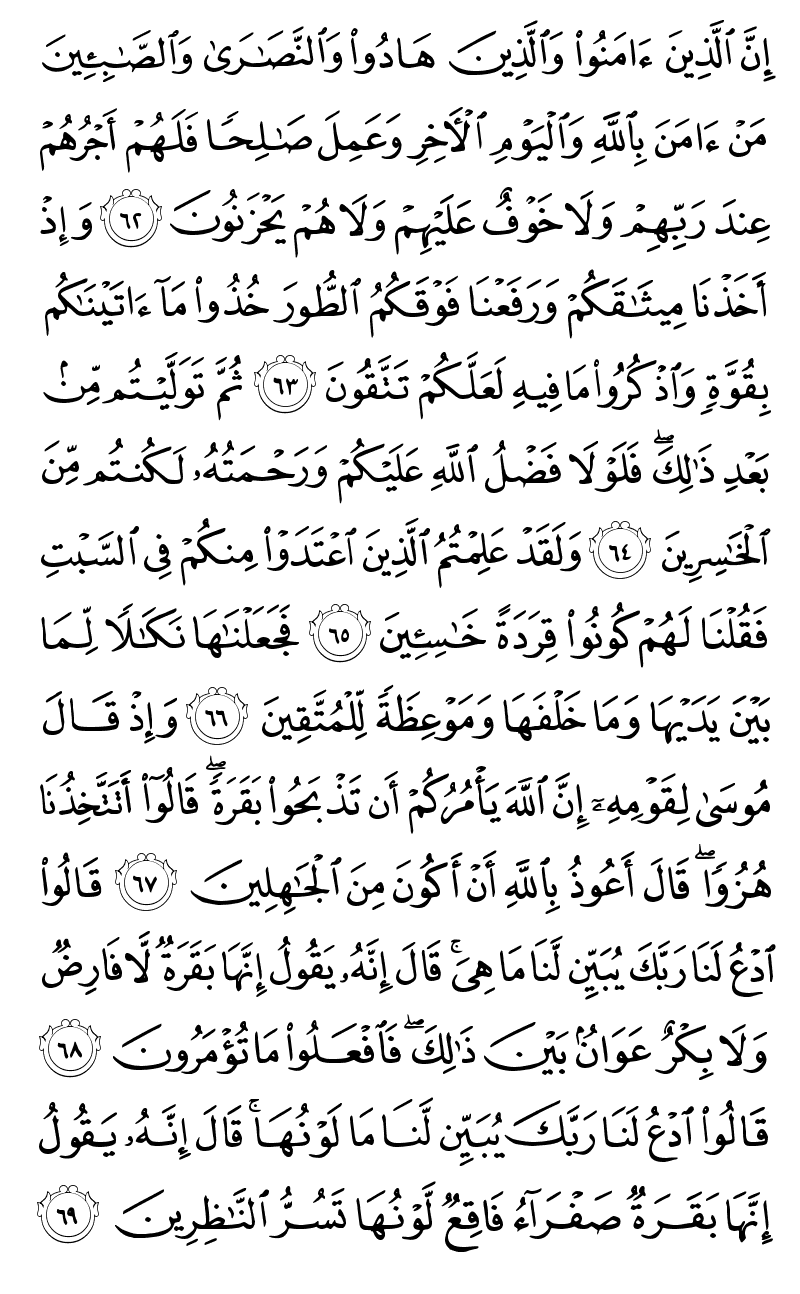 إِنَّ ٱلَّذِينَ ءَامَنُوا۟ وَٱلَّذِينَ هَادُوا۟ وَٱلنَّصَٰرَىٰ وَٱلصَّٰبِـِٔينَ
مَنْ ءَامَنَ بِٱللَّهِ وَٱلْيَوْمِ ٱلْءَاخِرِ وَعَمِلَ صَٰلِحًا فَلَهُمْ أَجْرُهُمْ
عِندَ رَبِّهِمْ وَلَا خَوْفٌ عَلَيْهِمْ وَلَا هُمْ يَحْزَنُونَ ٦٢ وَإِذْ
أَخَذْنَا مِيثَٰقَكُمْ وَرَفَعْنَا فَوْقَكُمُ ٱلطُّورَ خُذُوا۟ مَآ ءَاتَيْنَٰكُم
بِقُوَّةٍ وَٱذْكُرُوا۟ مَا فِيهِ لَعَلَّكُمْ تَتَّقُونَ ٦٣ ثُمَّ تَوَلَّيْتُم مِّنۢ
بَعْدِ ذَٰلِكَ ۖ فَلَوْلَا فَضْلُ ٱللَّهِ عَلَيْكُمْ وَرَحْمَتُهُۥ لَكُنتُم مِّنَ
ٱلْخَٰسِرِينَ ٦٤ وَلَقَدْ عَلِمْتُمُ ٱلَّذِينَ ٱعْتَدَوْا۟ مِنكُمْ فِى ٱلسَّبْتِ
فَقُلْنَا لَهُمْ كُونُوا۟ قِرَدَةً خَٰسِـِٔينَ ٦٥ فَجَعَلْنَٰهَا نَكَٰلًا لِّمَا
بَيْنَ يَدَيْهَا وَمَا خَلْفَهَا وَمَوْعِظَةً لِّلْمُتَّقِينَ ٦٦ وَإِذْ قَالَ
مُوسَىٰ لِقَوْمِهِۦٓ إِنَّ ٱللَّهَ يَأْمُرُكُمْ أَن تَذْبَحُوا۟ بَقَرَةً ۖ قَالُوٓا۟ أَتَتَّخِذُنَا
هُزُوًا ۖ قَالَ أَعُوذُ بِٱللَّهِ أَنْ أَكُونَ مِنَ ٱلْجَٰهِلِينَ ٦٧ قَالُوا۟
ٱدْعُ لَنَا رَبَّكَ يُبَيِّن لَّنَا مَا هِىَ ۚ قَالَ إِنَّهُۥ يَقُولُ إِنَّهَا بَقَرَةٌ لَّا فَارِضٌ
وَلَا بِكْرٌ عَوَانٌۢ بَيْنَ ذَٰلِكَ ۖ فَٱفْعَلُوا۟ مَا تُؤْمَرُونَ ٦٨
قَالُوا۟ ٱدْعُ لَنَا رَبَّكَ يُبَيِّن لَّنَا مَا لَوْنُهَا ۚ قَالَ إِنَّهُۥ يَقُولُ
إِنَّهَا بَقَرَةٌ صَفْرَآءُ فَاقِعٌ لَّوْنُهَا تَسُرُّ ٱلنَّٰظِرِينَ ٦٩